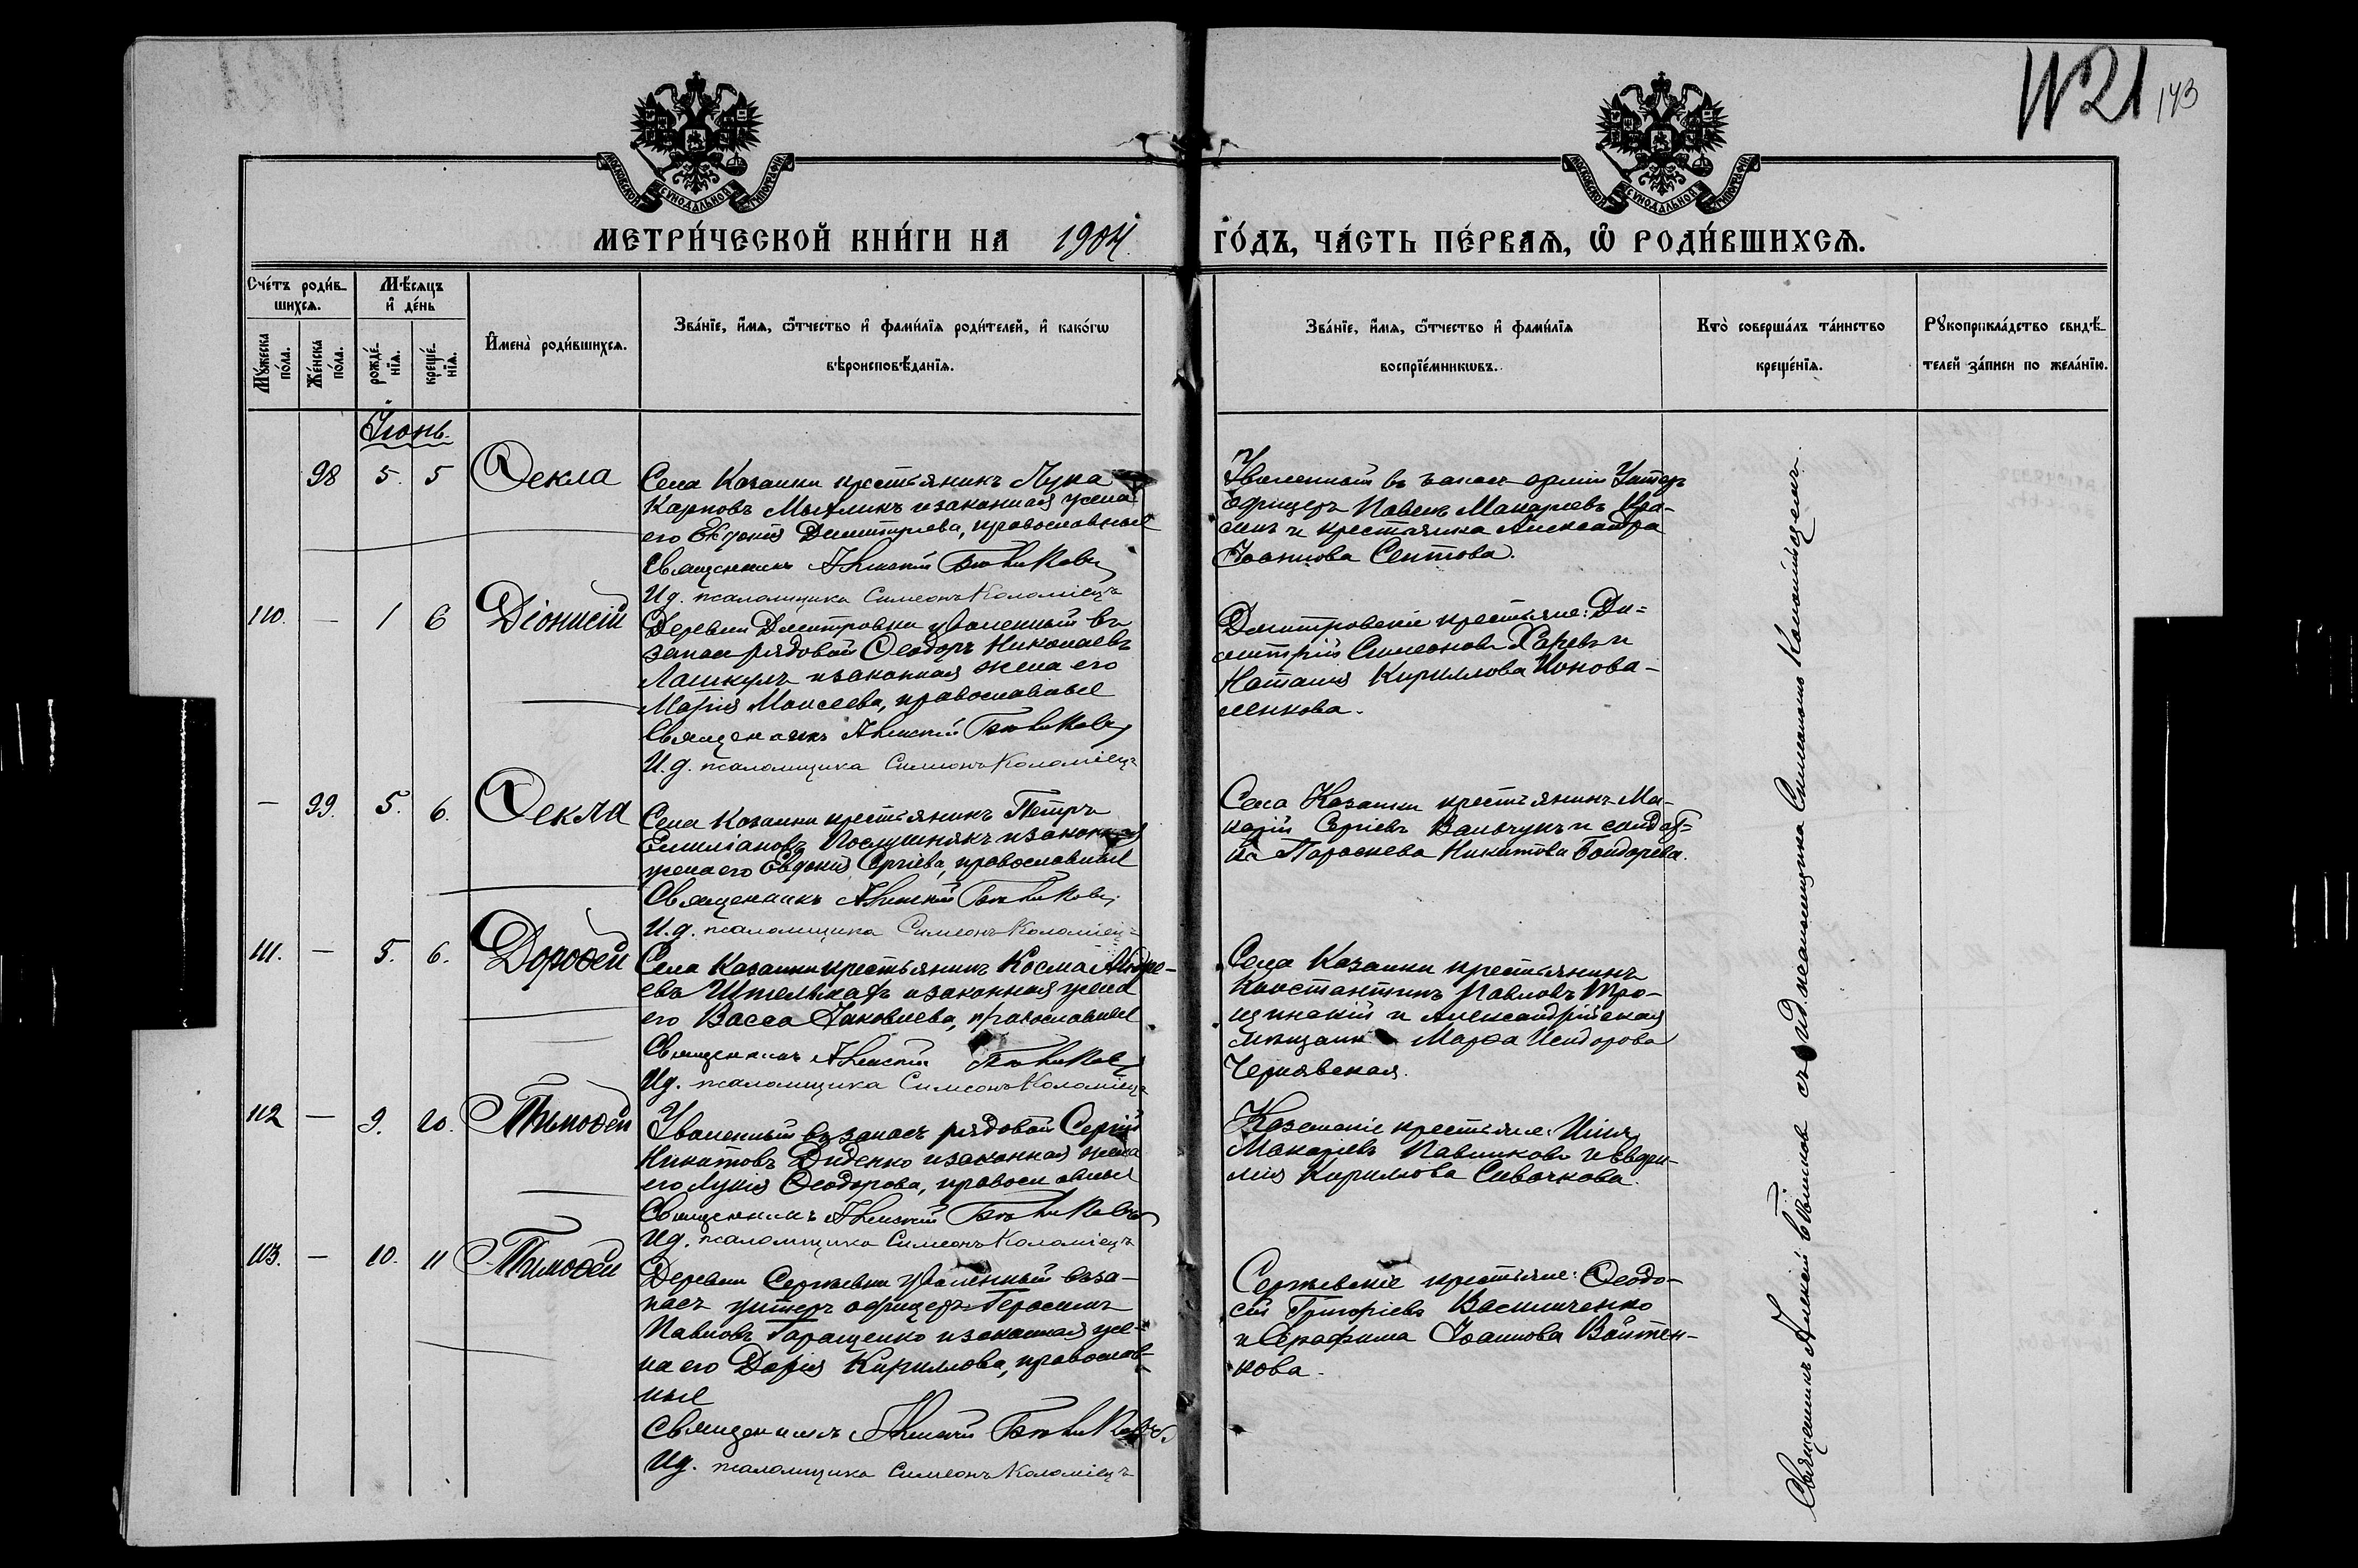 № 21 143
МОСКОВСКОЙ СѴНОДАЛЬНОЙ ТИПОГРАФІИ
МОСКОВСКОЙ СѴНОДАЛЬНОЙ ТИПОГРАФІИ
МЕТРИ́ЧЕСКОЙ КНИ́ГИ НА 1904 ГО́ДЪ, ЧА́СТЬ ПЕ́РВАѦ, Ѿ РОДИ́ВШИХСѦ.
Сче́тъ роди́в-
шихсѧ.
Мꙋ́жеска
по́ла.
Же́нска
по́ла.
Мѣ́сяцъ
и҆ де́нь
рожде́-
нїѧ.
креще́-
нїѧ.
И҆мена̀ роди́вшихсѧ.
Зва́нїе, и҆́мѧ, ѻ҆́тчество и҆ фами́лїѧ роди́телей, и҆ како́гѡ
вѣроисповѣ́данїѧ.
Зва́нїе, и҆́мѧ, ѻ҆́тчество и҆ фами́лїѧ
воспрїе́мникѡвъ.
Кто̀ соверша́лъ та́инство
креще́нїѧ.
Рꙋкоприкла́дство свидѣ́-
телей за́писи по жела́нїю.
Іюнь.
98 5. 5 Ѳекла
Села Казанки крестьянинъ Лука
Карповъ и законная жена
его Евдокія Димитріева, православные
Священникъ Алексій
И.д. псаломщика Симеонъ Коломіецъ
Уволенный въ запасъ арміи Унтеръ
офицеръ Павелъ Макаріевъ Кра-
и крестьянка Александра
Іоаннова
110. — 1 6 Діонисій
Деревни Дмитровки уволенный въ
запасъ рядовой Ѳеодоръ Николаевъ
Лашкулъ и законная жена его
Марія Моисеева, православные
Священникъ Алексій
И.д. псаломщика Симеонъ Коломіецъ
Дмитровскіе крестьяне: Ди-
митрій Симеоновъ и
Наталія Кириллова Конова-
ленкова.
— 99. 5. 6. Ѳекла
Села Казанки крестьянинъ Петръ
Емиліановъ Послушнякъ и законная
жена его Евдокія Сергіева, православные
Священникъ Алексій
И.д. псаломщика Симеонъ Коломіецъ
Села Казанки крестьянинъ Ма-
карій Сергіевъ и солдат-
ка Параскева Никитова Бондарева.
111. — 5. 6. Дороѳей
Села Казанки крестьянинъ Косма Андре-
евъ и законная жена
его Васса Іаковлева, православные
Священникъ Алексій
И.д. псаломщика Симеонъ Коломіецъ
Села Казанки крестьянинъ
Константинъ Павловъ Тро-
щинскій и Александрійская
мѣщанка Марѳа Исидорова
Чернявская.
112 — 9. 10. Тимоѳей
Уволенный въ запасъ рядовой Сергій
Никитовъ Диденко и законная жена
его Лукія Ѳеодорова, православные
Священникъ Алексій
И.д. псаломщика Симеонъ Коломіецъ
Казанскіе крестьяне: Илія
Макаріевъ Павликовъ и Евфи-
мія Кириллова Сивачкова.
113. — 10. 11 Тимоѳей
Деревни Сергѣевки уволенный въ за-
пасъ унтеръ офицеръ Герасимъ
Павловъ Таращенко и законная же-
на его Дарія Кириллова, православ-
ные
Священникъ Алексій
И.д. псаломщика Симеонъ Коломіецъ
Сергѣевскіе крестьяне: Ѳеодо-
сій Григоріевъ Василиченко
и Серафима Іоаннова Войтен-
кова.
Священникъ Алексій съ и.д. псаломщика Симеономъ Коломійцемъ.